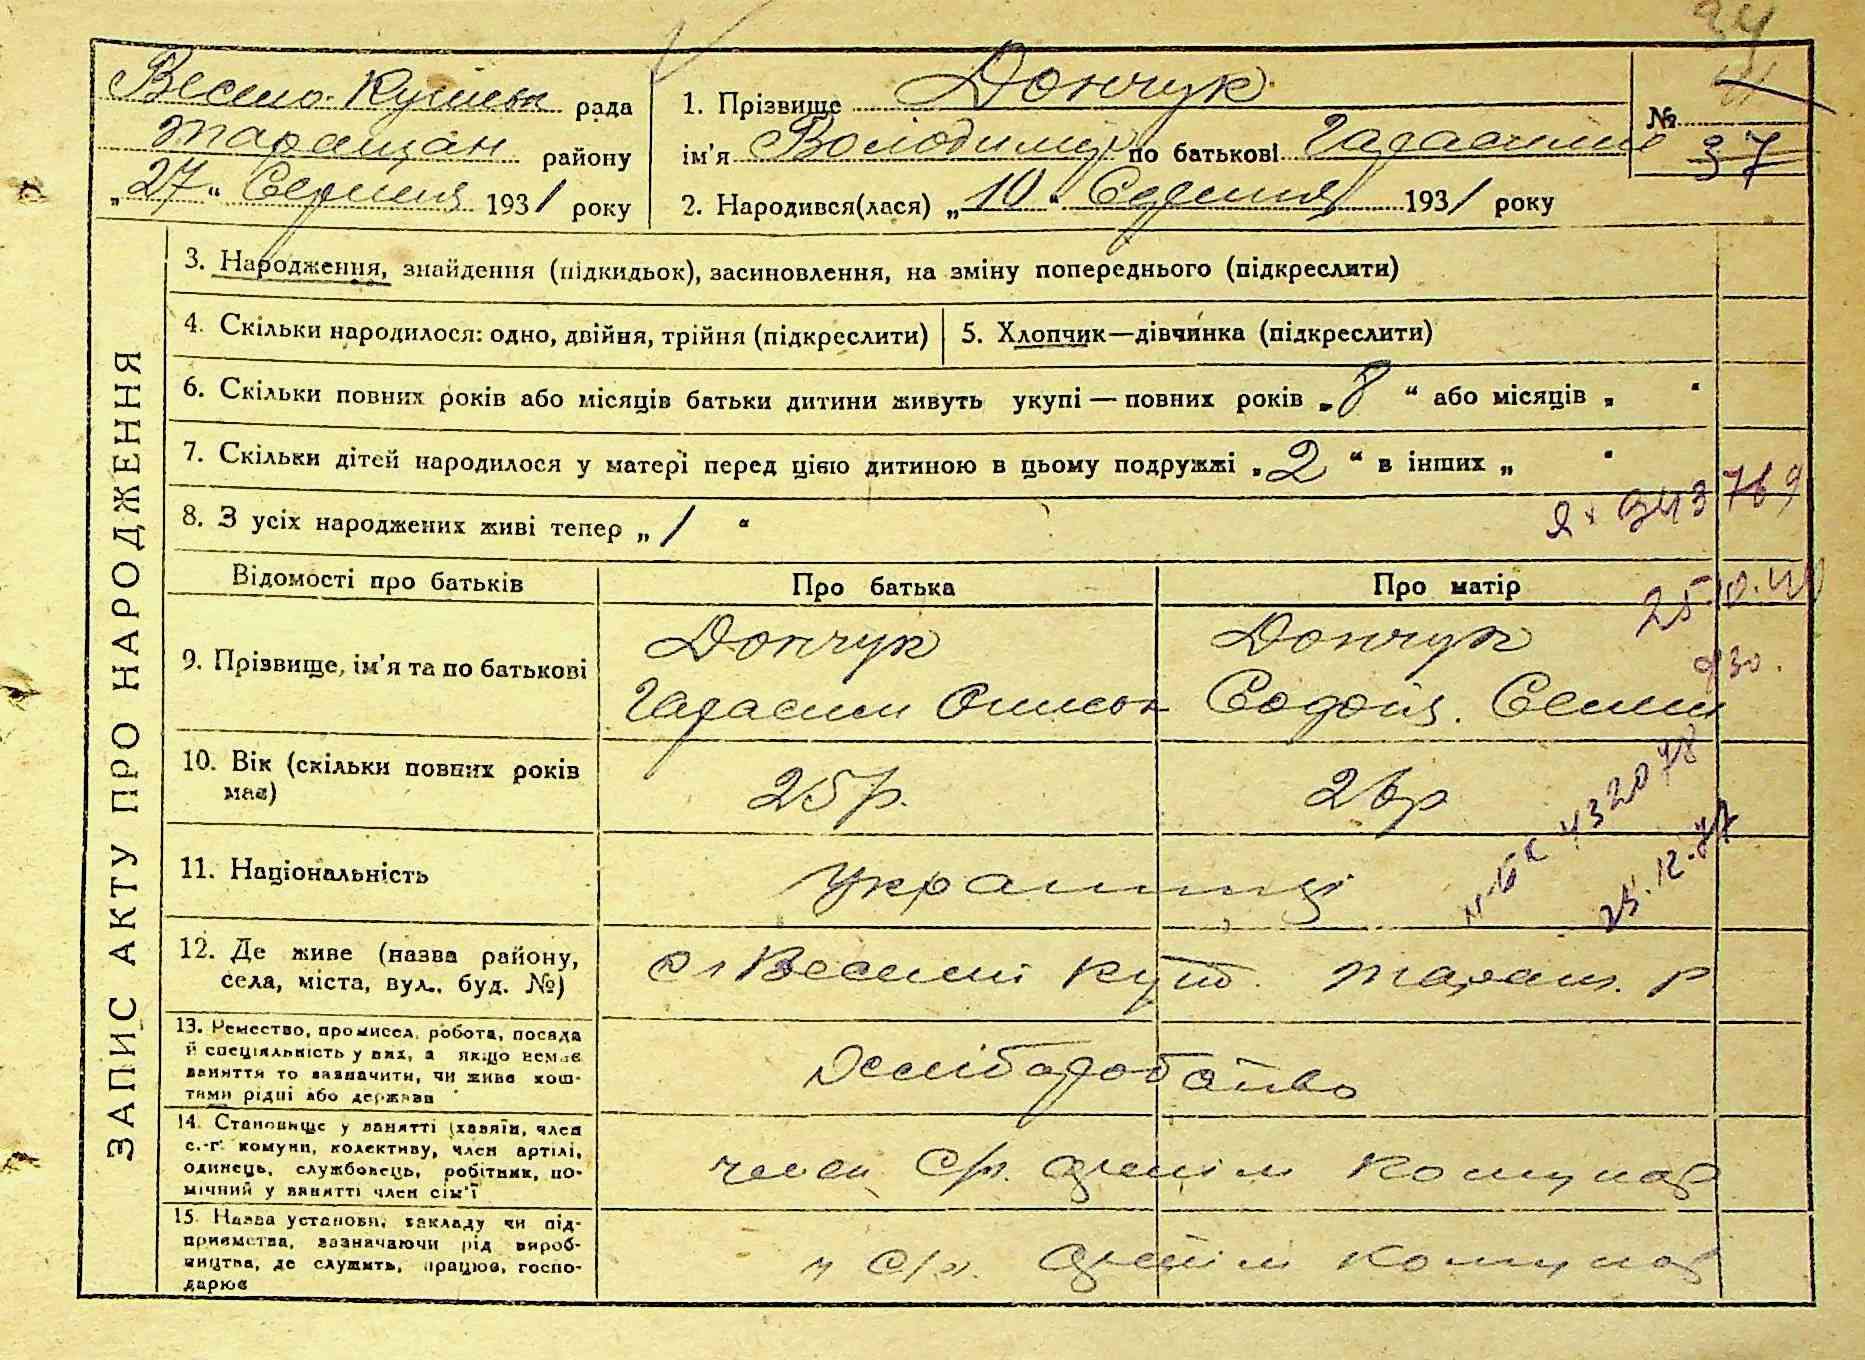 34
Весело-Кутськ рада
Таращан району
„27“ Серпня 1931 року
1. Прізвище Дончук
ім'я Володимир по батькові Гарасимів
2. Народився(лася) „10“ Серпня 1931 року
№ 37
ЗАПИС АКТУ ПРО НАРОДЖЕННЯ
3. Народження, знайдення (підкидьок), засиновлення, на зміну попереднього (підкреслити)
4. Скільки народилося: одно, двійня, трійня (підкреслити)
5. Хлопчик—дівчинка (підкреслити)
6. Скільки повних років або місяців батьки дитини живуть укупі — повних років „8“ або місяців „ “
7. Скільки дітей народилося у матері перед цією дитиною в цьому подружжі „2“ в інших „ “
8. З усіх народжених живі тепер „1“
Відомості про батьків
Про батька
Про матір
25.10.40
9. Прізвище, ім'я та по батькові
Дончук
Гарасим Ониськ
Дончук
Єводоця. Семен
10. Вік (скільки повних років
має)
25 р.
26 р
432078
25.12.77
11. Національність
Українці
12. Де живе (назва району,
села, міста, вул., буд. №)
Веселий Кут. Таращ. р
13. Ремество, промисел, робота, посада
й спеціяльність у них, а якщо немає
заняття то зазначити, чи живе кош-
тами рідні або держави
Хліборобство
14. Становище у занятті (хазяїн, член
с.-г. комуни, колективу, член артілі,
одинець, службовець, робітник, по-
мічний у занятті член сім'ї
член С/г. артіл Комунар
15. Назва установи, закладу чи під-
приємства, зазначаючи рід вироб-
ництва, де служить, працює, госпо-
дарює
у С/г. артіл Комунар